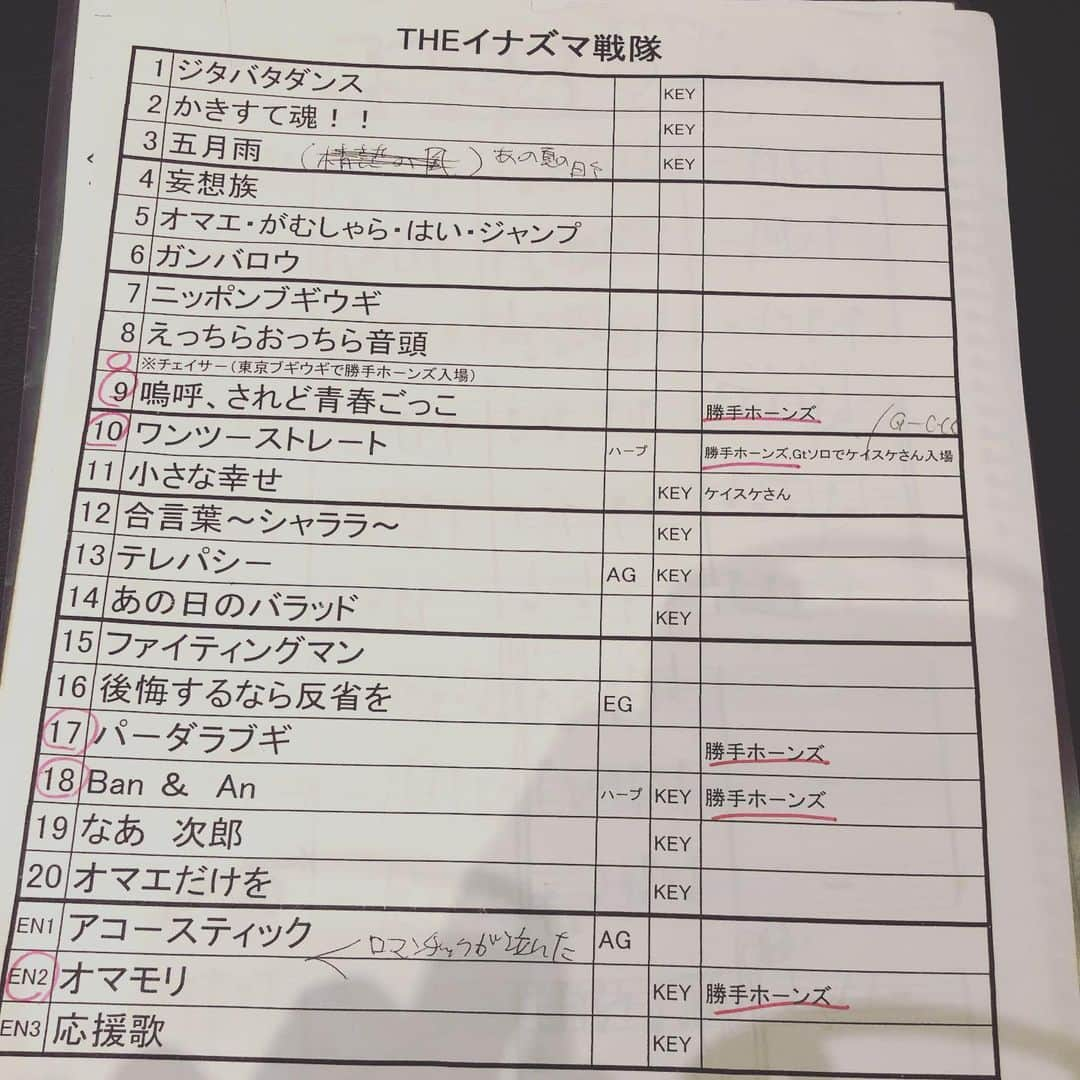 THEイナズマ戦隊
1 ジタバタダンス KEY
2 かきすて魂！！ KEY
3 五月雨 (情熱の風) あの夏の日々 KEY
4 妄想族
5 オマエ・がむしゃら・はい・ジャンプ
6 ガンバロウ
7 ニッポンブギウギ
8 えっちらおっちら音頭
8 ※チェイサー（東京ブギウギで勝手ホーンズ入場）
9 嗚呼、されど青春ごっこ 勝手ホーンズ
10 ワンツーストレート ハープ 勝手ホーンズ,Gtソロでケイスケさん入場
11 小さな幸せ KEY ケイスケさん
12 合言葉～シャララ～ KEY
13 テレパシー AG KEY
14 あの日のバラッド KEY
15 ファイティングマン
16 後悔するなら反省を EG
17 パーダラブギ 勝手ホーンズ
18 Ban ＆ An ハープ KEY 勝手ホーンズ
19 なあ 次郎 KEY
20 オマエだけを KEY
EN1 アコースティック AG
ロマンチックが泣いた
EN2 オマモリ KEY 勝手ホーンズ
EN3 応援歌 KEY